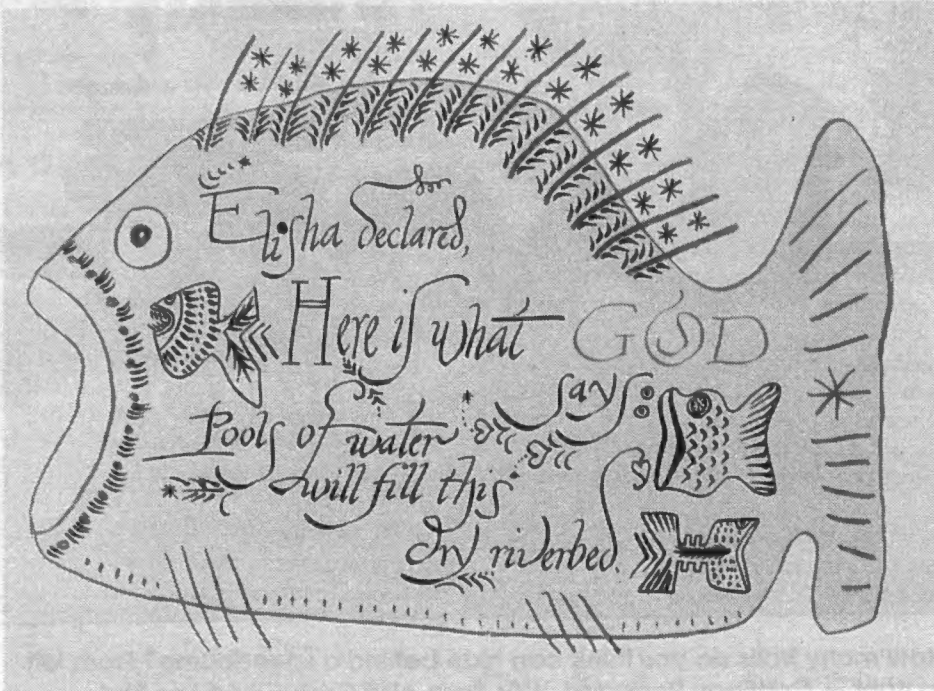 Elisha declared,
Here is what GOD
says
Pools of water
will fill this
dry riverbed.